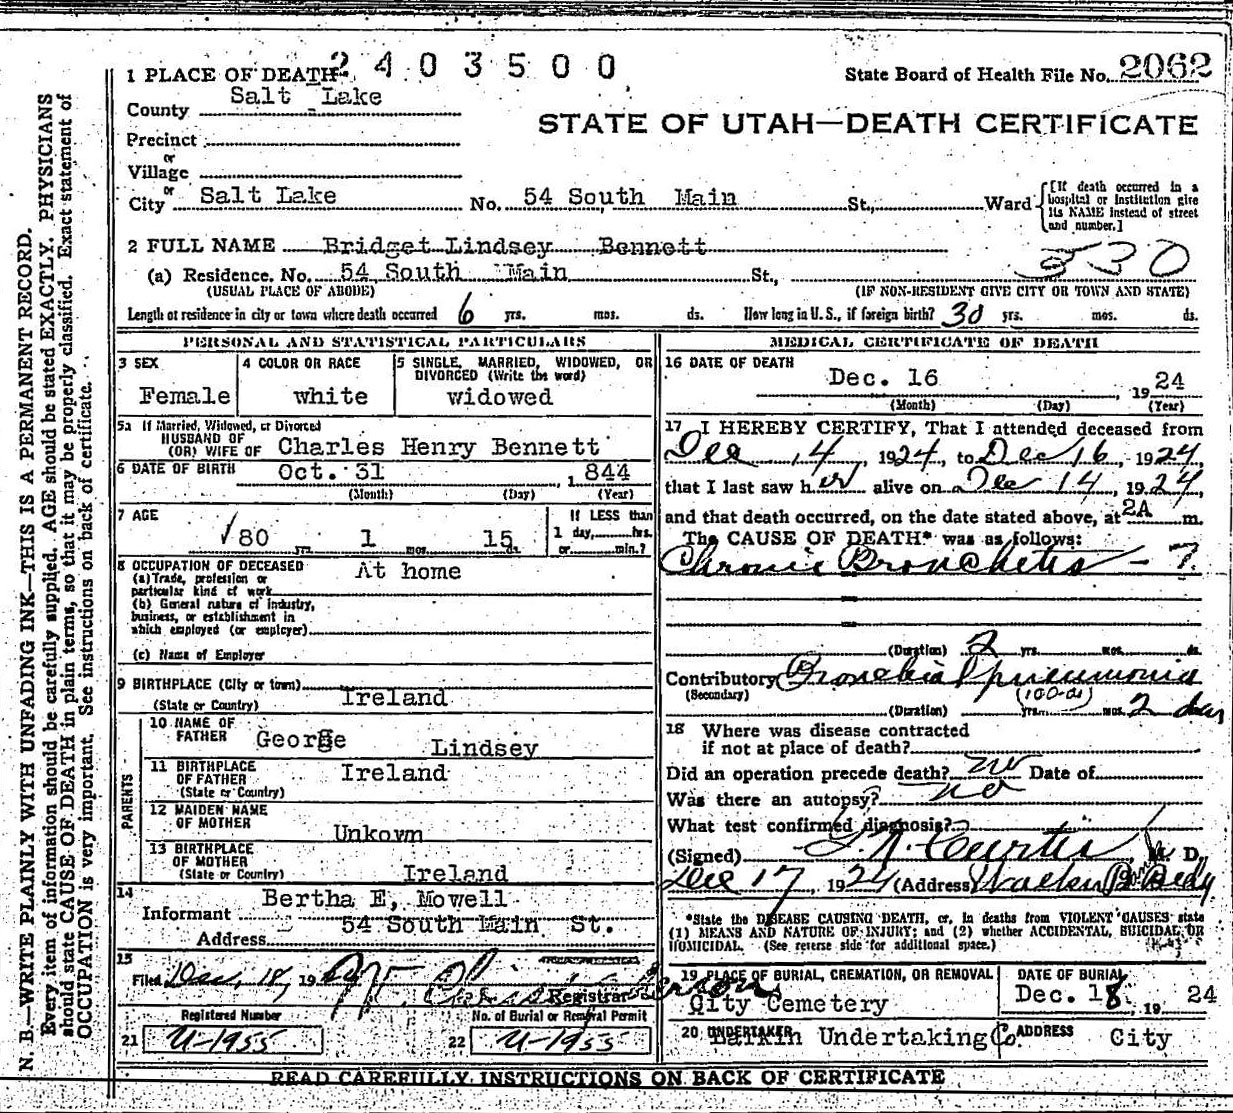 2403500
1 PLACE OF DEATH
State Board of Health File No. 2062
County Salt Lake
STATE OF UTAH—DEATH CERTIFICATE
Precinct
or
Village
or
City Salt Lake No. 54 South Main St., Ward
[If death occurred in a
hospital or institution give
its NAME instead of street
and number.]
2 FULL NAME Bridget Lindsey Bennett
(a) Residence, No. 54 South Main St.,
(USUAL PLACE OF ABODE) (IF NON-RESIDENT GIVE CITY OR TOWN AND STATE)
Length of residence in city or town where death occurred 6 yrs. mos. ds. How long in U.S., if foreign birth? 30 yrs. mos. ds.
PERSONAL AND STATISTICAL PARTICULARS
3 SEX
Female
4 COLOR OR RACE
white
5 SINGLE, MARRIED, WIDOWED, OR
DIVORCED (Write the word)
widowed
5a If Married, Widowed, or Divorced
HUSBAND OF
(OR) WIFE OF Charles Henry Bennett
6 DATE OF BIRTH Oct. 31, 1844
(Month) (Day) (Year)
7 AGE
80 yrs. 1 mos. 15 ds.
If LESS than
1 day, hrs.
or min.?
8 OCCUPATION OF DECEASED At home
(a) Trade, profession or
particular kind of work
(b) General nature of Industry,
business, or establishment in
which employed (or employer)
(c) Name of Employer
9 BIRTHPLACE (City or town)
(State or Country) Ireland
PARENTS
10 NAME OF
FATHER George Lindsey
11 BIRTHPLACE
OF FATHER Ireland
(State or Country)
12 MAIDEN NAME
OF MOTHER Unkown
13 BIRTHPLACE
OF MOTHER
(State or Country) Ireland
14
Informant Bertha E, Mowell
Address 54 South Main St.
15
Filed Dec, 18, 19
Registrar
Registered Number No. of Burial or Removal Permit
21 U-1955 22 U-1955
MEDICAL CERTIFICATE OF DEATH
16 DATE OF DEATH
Dec. 16 1924
(Month) (Day) (Year)
17 I HEREBY CERTIFY, That I attended deceased from
Dec 14, 1924, to Dec 16, 1924,
that I last saw her alive on Dec 14, 1924,
and that death occurred, on the date stated above, at 2A m.
The CAUSE OF DEATH* was as follows:
Chronic Bronchetis - ?
(Duration) 2 yrs. mos. ds.
Contributory Bronchial pneumonia
(Secondary) (100-a)
(Duration) yrs. mos. 2 days
18 Where was disease contracted
if not at place of death?
Did an operation precede death? no Date of
Was there an autopsy? no
What test confirmed diagnosis?
(Signed) Curtis M. D.
Dec 17, 1924 (Address Walker B Bldg
*State the DISEASE CAUSING DEATH, or, in deaths from VIOLENT CAUSES state
(1) MEANS AND NATURE OF INJURY; and (2) whether ACCIDENTAL, SUICIDAL OR
HOMICIDAL. (See reverse side for additional space.)
19 PLACE OF BURIAL, CREMATION, OR REMOVAL
City Cemetery
DATE OF BURIAL
Dec. 18, 19 24
20 UNDERTAKER
Larkin Undertaking Co. ADDRESS City
READ CAREFULLY INSTRUCTIONS ON BACK OF CERTIFICATE
N. B.—WRITE PLAINLY WITH UNFADING INK—THIS IS A PERMANENT RECORD.
Every item of information should be carefully supplied. AGE should be stated EXACTLY. PHYSICIANS
should state CAUSE OF DEATH in plain terms, so that it may be properly classified. Exact statement of
OCCUPATION is very important. See instructions on back of certificate.